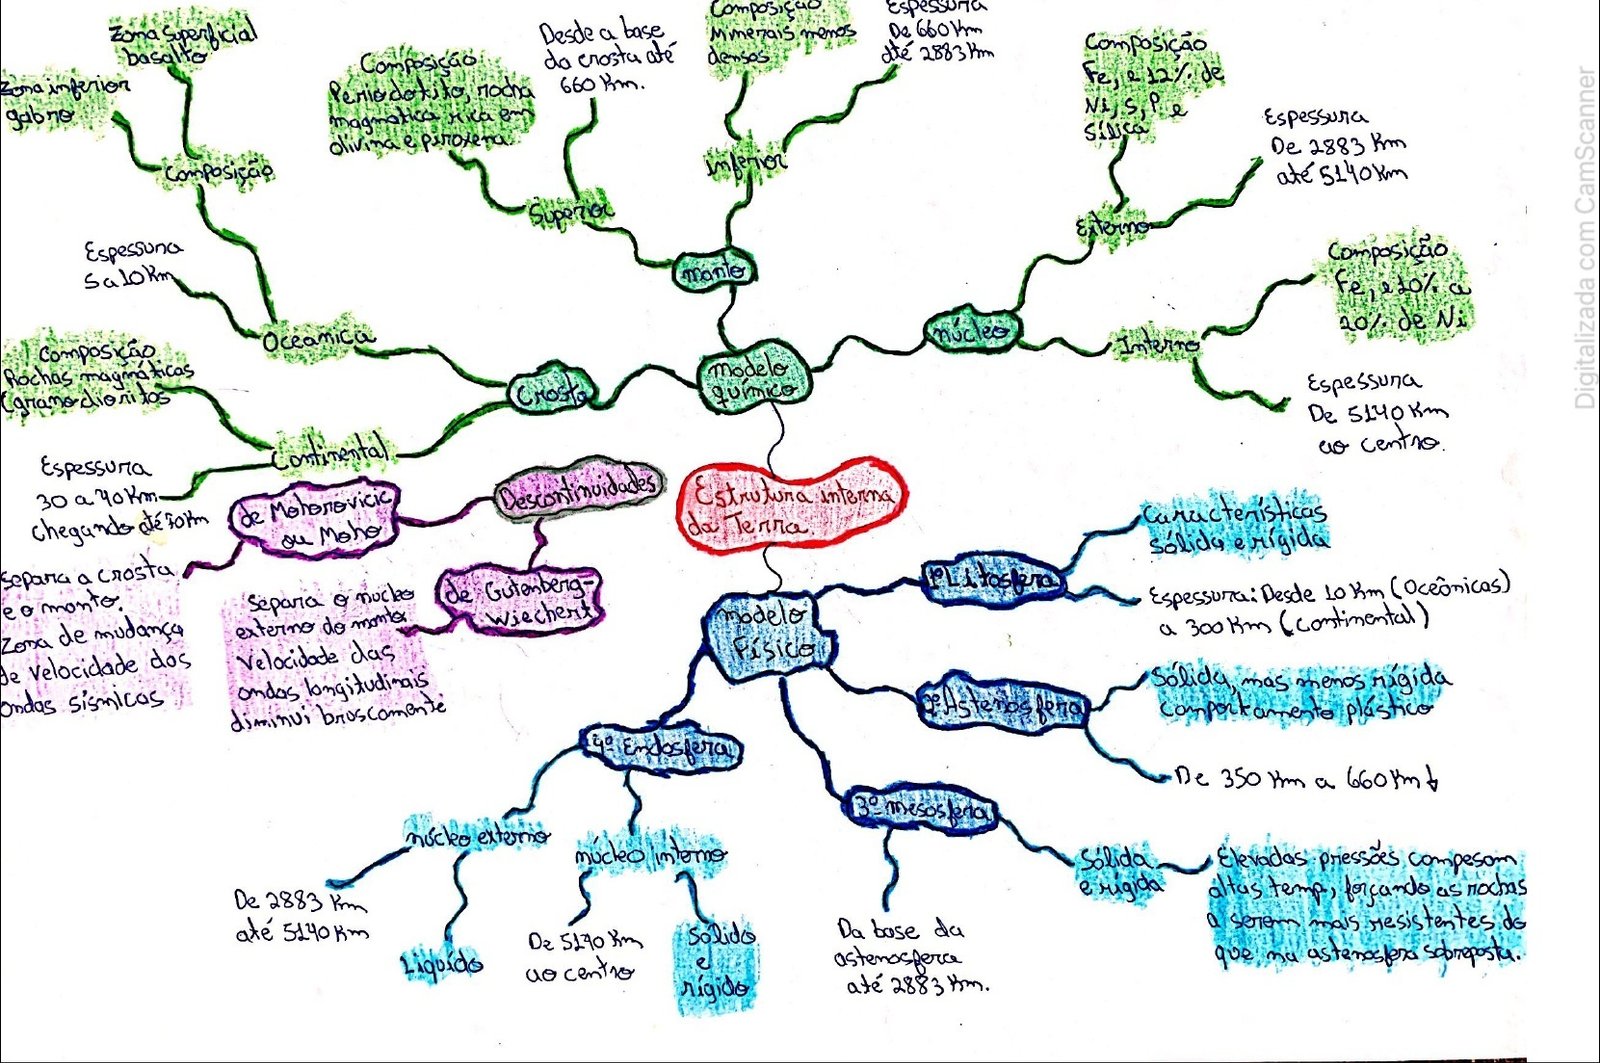 Zona superficial
basalto
Zona inferior
gabro
Composição
Espessura
5 a 10 Km
Oceanica
Composição
Rochas magmáticas
(granodioritos
Continental
Espessura
30 a 40 Km
chegando até 70 Km
Crosta
Composição
Periodotito, rocha
magmatica rica em
olivina e piroxena.
Desde a base
da crosta até
660 Km.
Superior
Composição
Minerais menos
densos
Espessura
De 660 Km
até 2883 Km
Inferior
manto
Composição
Fe, e 12% de
Ni, S, P, e
Sílica
Espessura
De 2883 Km
até 5140 Km
Externo
núcleo
Composição
Fe, e 10% a
20% de Ni
Interno
Espessura
De 5140 Km
ao centro.
modelo
químico
Estrutura interna
da Terra
Descontinuidades
de Mohorovicic
ou Moho
Separa a crosta
e o manto.
Zona de mudança
de velocidade das
ondas sísmicas
de Gutenberg-
Wiechert
Separa o nucleo
externo do manto
Velocidade das
ondas longitudinais
diminui bruscamente
modelo
Físico
1ª Litosfera
Características
sólida e rígida
Espessura: Desde 10 Km (Oceânicas)
a 300 Km (continental)
2ª Astenosfera
Sólida, mas menos rígida
comportamento plástico
De 350 Km a 660 Km ↓
3ª mesosfera
Sólida
e rígida
Elevadas pressões compesam
altas temp, forçando as rochas
a serem mais resistentes do
que na astenosfera sobreposta.
Da base da
astenosfera
até 2883 Km.
4ª Endosfera
núcleo externo
De 2883 Km
até 5140 Km
Liquído
núcleo interno
De 5140 Km
ao centro
Sólido
e
rígido
Digitalizada com CamScanner